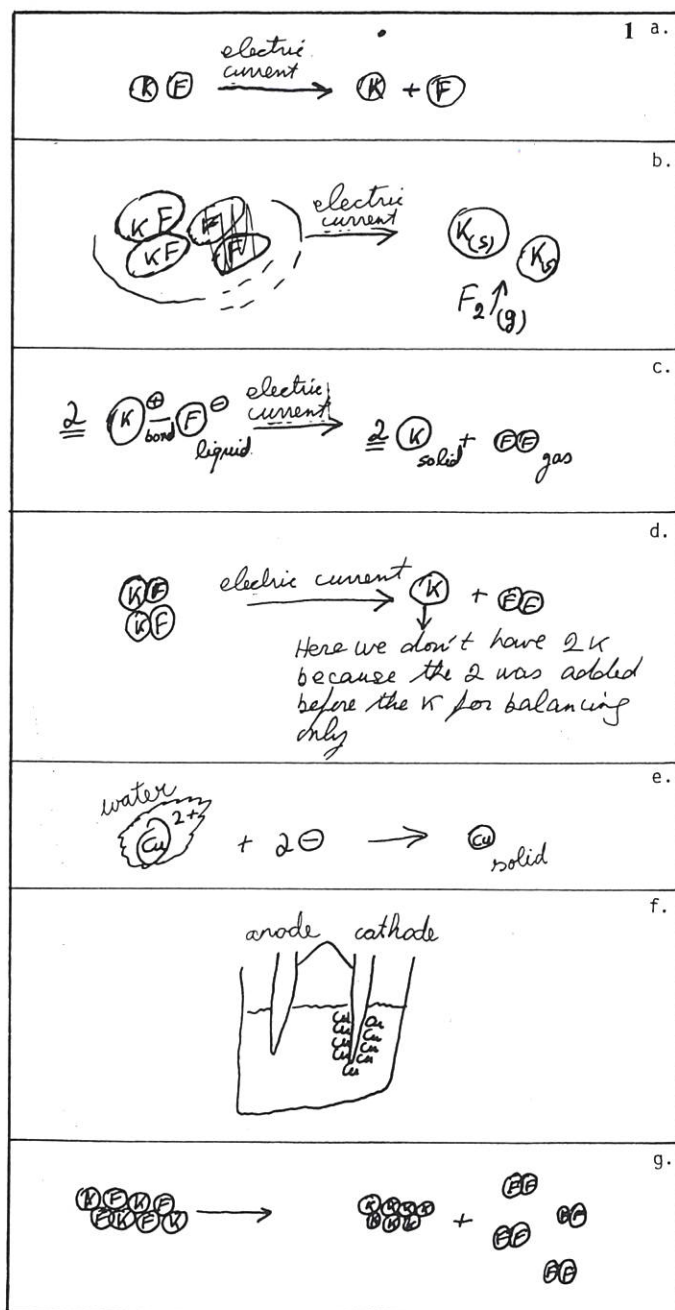 1 a.
electric
current
K F → K + F
b.
K F F electric
current K(s) K(s)
K F F
F2 ↑ (g)
c.
2 K ⊕ F ⊖ electric
current 2 K + F F
bond liquid solid gas
d.
K F electric current K + F F
K F
Here we don't have 2 K
because the 2 was added
before the K for balancing
only
e.
water
Cu 2+ + 2 ⊖ → Cu
solid
f.
anode cathode
Cu Cu
Cu Cu
Cu Cu
Cu Cu
Cu
g.
K F K F → K K K K + F F
F K F K K K K F F
F F
F F